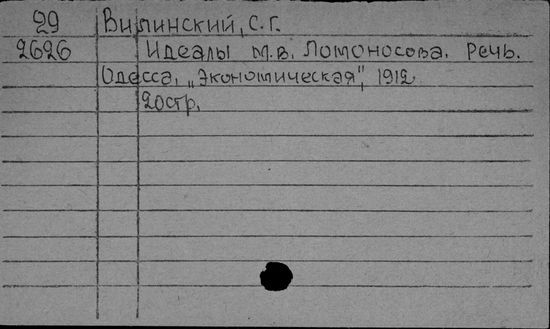 29 Вилинский, С.Г.
2626 Идеалы М.В. Ломоносова. Речь.
Одесса, „Экономическая", 1912
20стр.